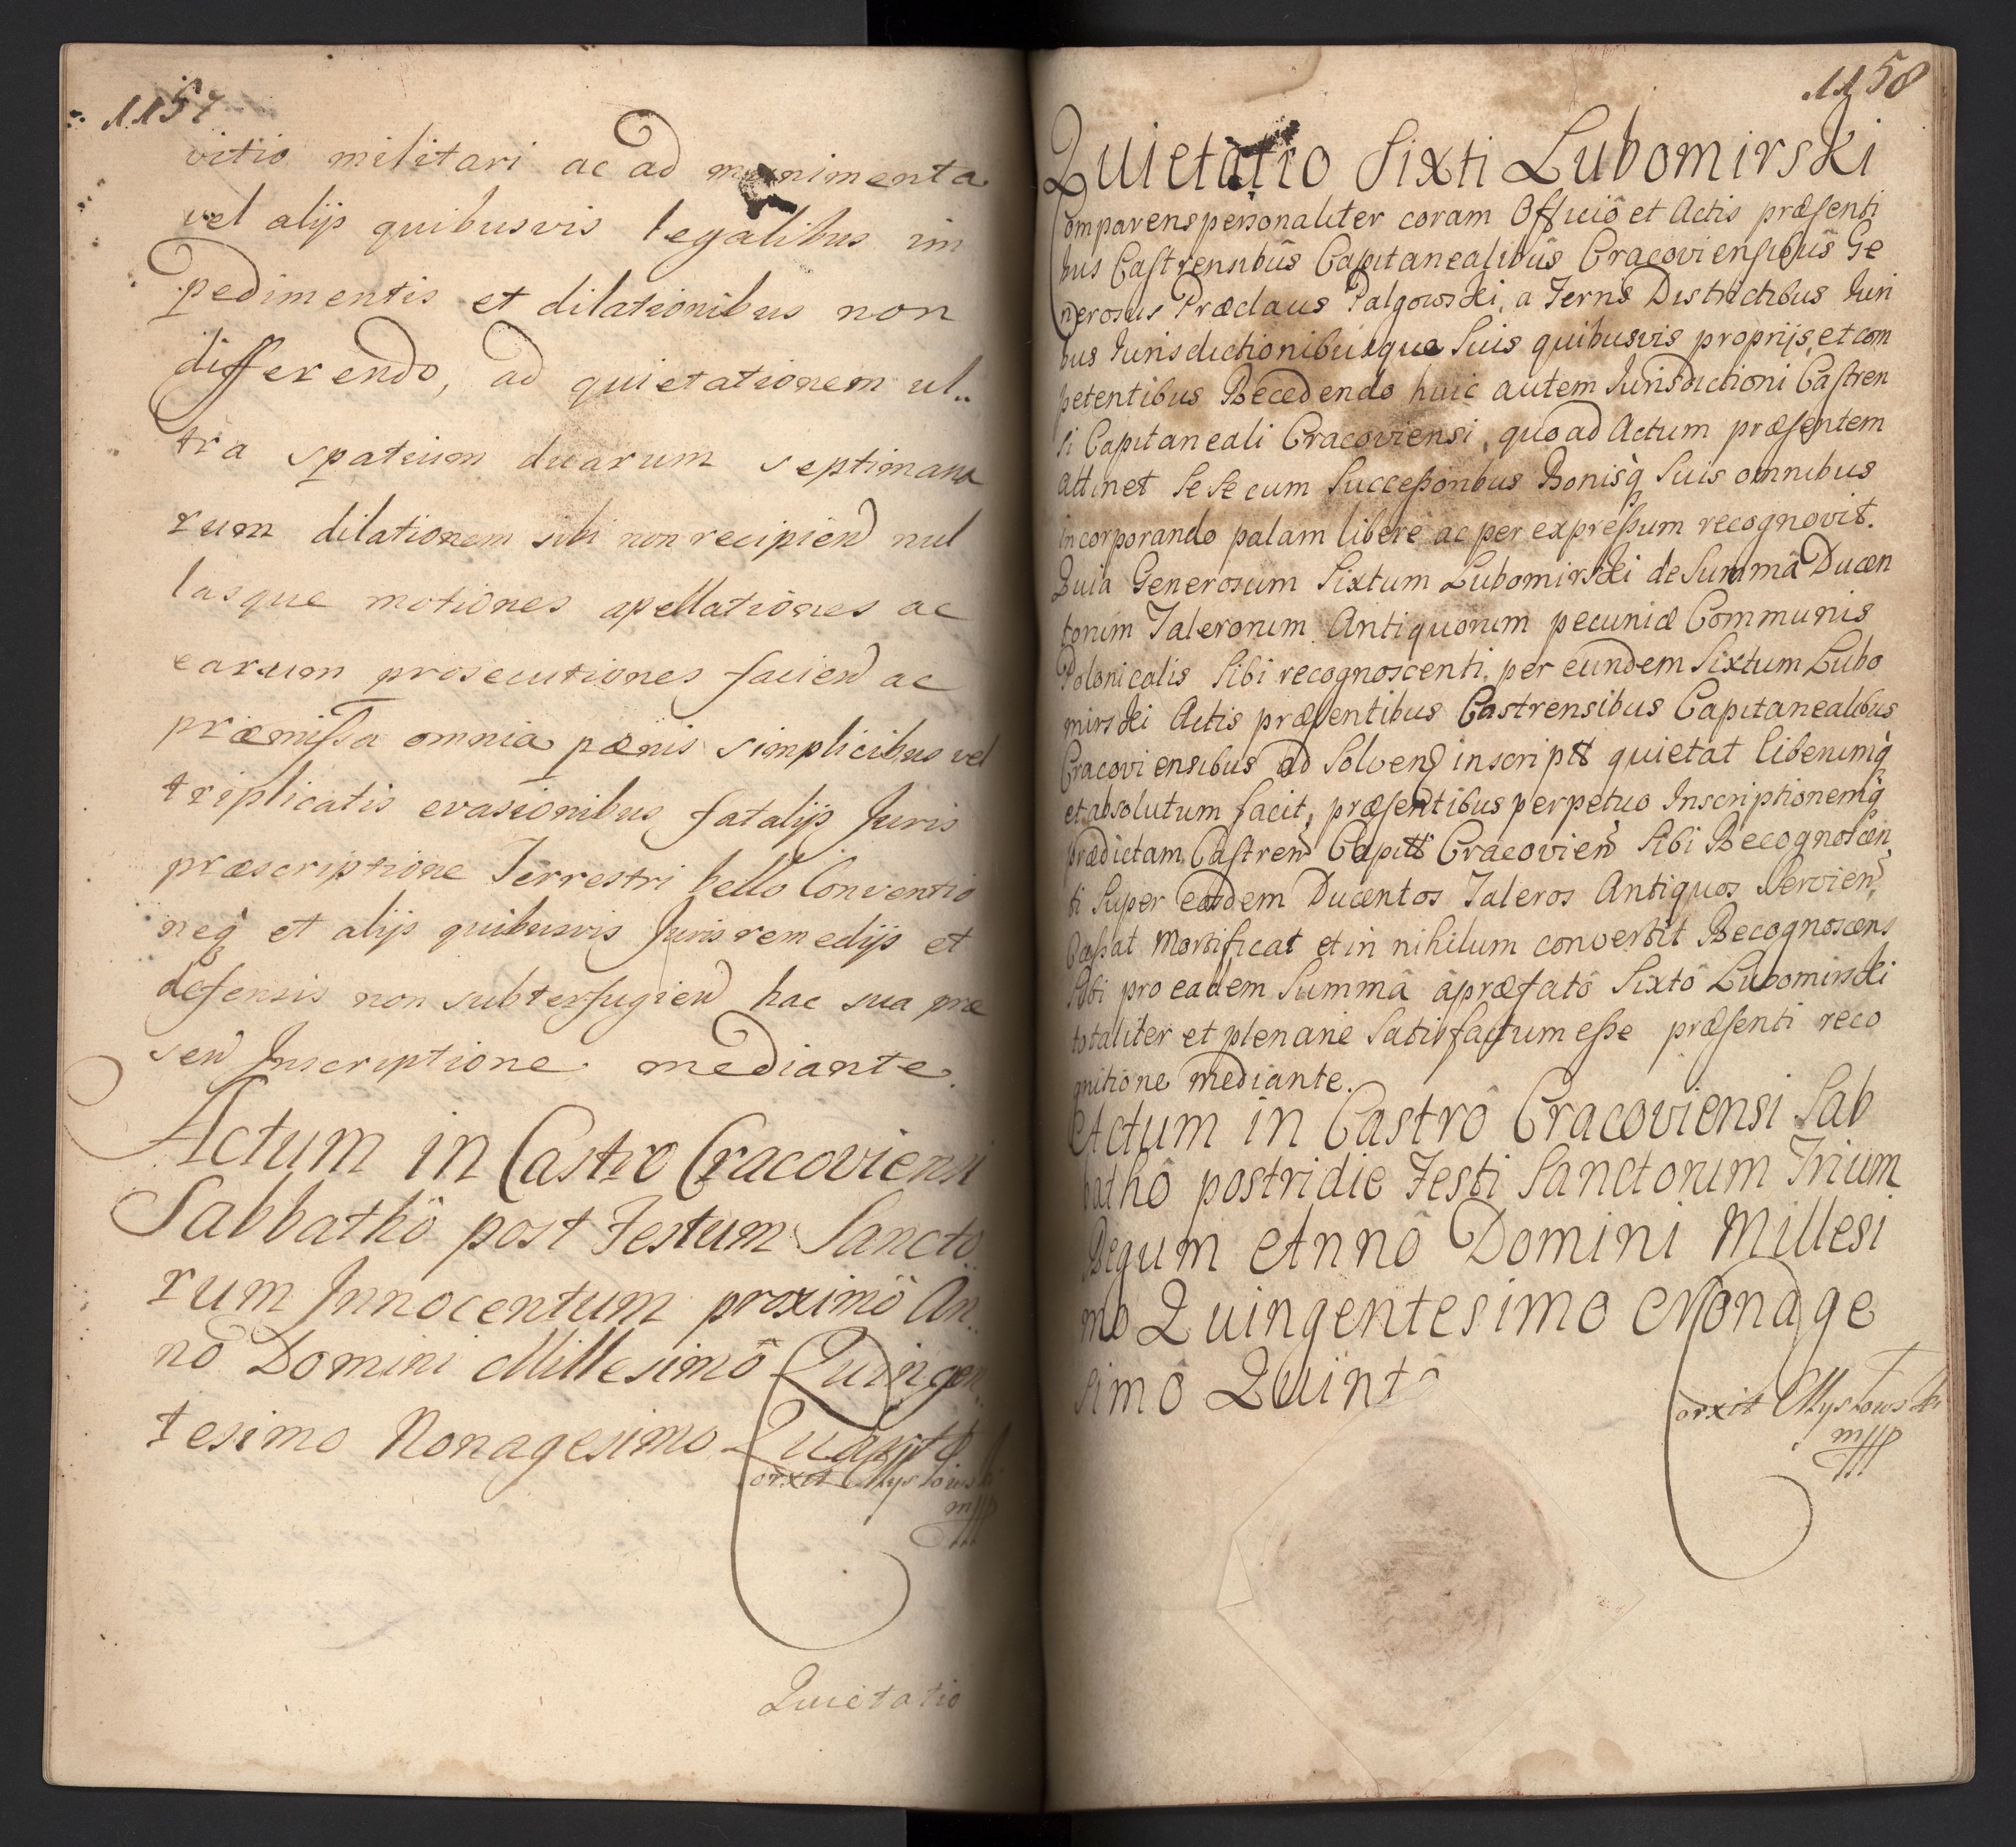 1157
vitio militari ac ad munimenta
vel alijs quibusvis legalibus im
pedimentis et dilationibus non
differendo, ad quietationem ul..
tra spatium duarum septimana
rum dilationem sibi non recipien̄d nul
lasque motiones apellationes ac
earum prosecutiones facien̄d ac
præmissa omnia pænis simplicibus vel
triplicatis evasionibus fatalijs Juris
præscriptione Terrestri bello Conventio
neq̀ et alijs quibusvis Juris remedijs et
defensis non subterfugien̄d hac sua præ
sen̄ Inscriptione mediante.
Actum in Castro Cracoviensi
Sabbathô post Festum Sancto
rum Innocentum proximô An
nô Domini Millesimô Quingen
tesimo Nonagesimo Quarto
Quietatio
1158
Quietatio Sixti Lubomirski
Comparens personaliter coram Officiô et Actis præsenti
bus Castrensibûs Capitanealibûs Cracoviensibûs Ge
nerosus Prædaus Palgowski, a Terris Districtibus Juri
bus Jurisdictionibusque Suis quibusvis proprijs, et com
petentibus Recedendo huic autem Jurisdictioni Castren
si Capitaneali Cracoviensi, quo ad Actum præsentem
attinet Se Se cum Successoribus Bonisq̀ Suis omnibus
incorporando palam libere ac per expressum recognovit.
Quia Generosum Sixtum Lubomirski de Summâ Ducen
torum Talerorum Antiquorum pecuniæ Communis
Polonicalis Sibi recognoscenti, per eundem Sixtum Lubo
mirski Actis præsentibus Castrensibus Capitanealibus
Cracoviensibus ad Solven̄d inscriptt quietat liberumq̀
et absolutum facit, præsentibus perpetuo Inscriptionemq̀
prædictam Castren̄ Capitt Cracovien̄ Sibi Recognoscen
ti Super eosdem Ducentos Taleros Antiquos Servien̄,
Cassat Mortificat et in nihilum convertit Recognoscens
Sibi pro eadem Summâ à præfatô Sixtô Lubomirski
totaliter et plenarie Satisfactum esse præsenti reco
gnitione mediante.
Actum in Castrô Cracoviensi Sab
bathô postridie Festi Sanctorum Trium
Regum Annô Domini Millesi
mo Quingentesimo Nonage
simô Quintô